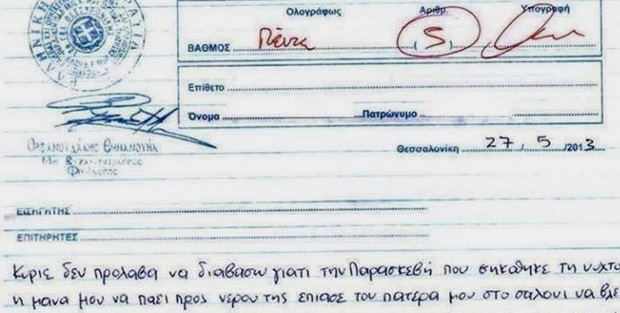 Ολογράφως Αριθμ. Υπογραφή
ΒΑΘΜΟΣ Πέντε (5)
Επίθετο
Όνομα Πατρώνυμο
Θεσσαλονίκη 27, 5 /2013
ΕΙΣΗΓΗΤΗΣ
ΕΠΙΤΗΡΗΤΕΣ
Κυριε δεν πρόλαβα να διαβασω γιατι την Παρασκεβή που σηκωθηκε τη νυχτα
η μανα μου να παει προς νερου της επιασε τον πατερα μου στο σαλονι να βλε